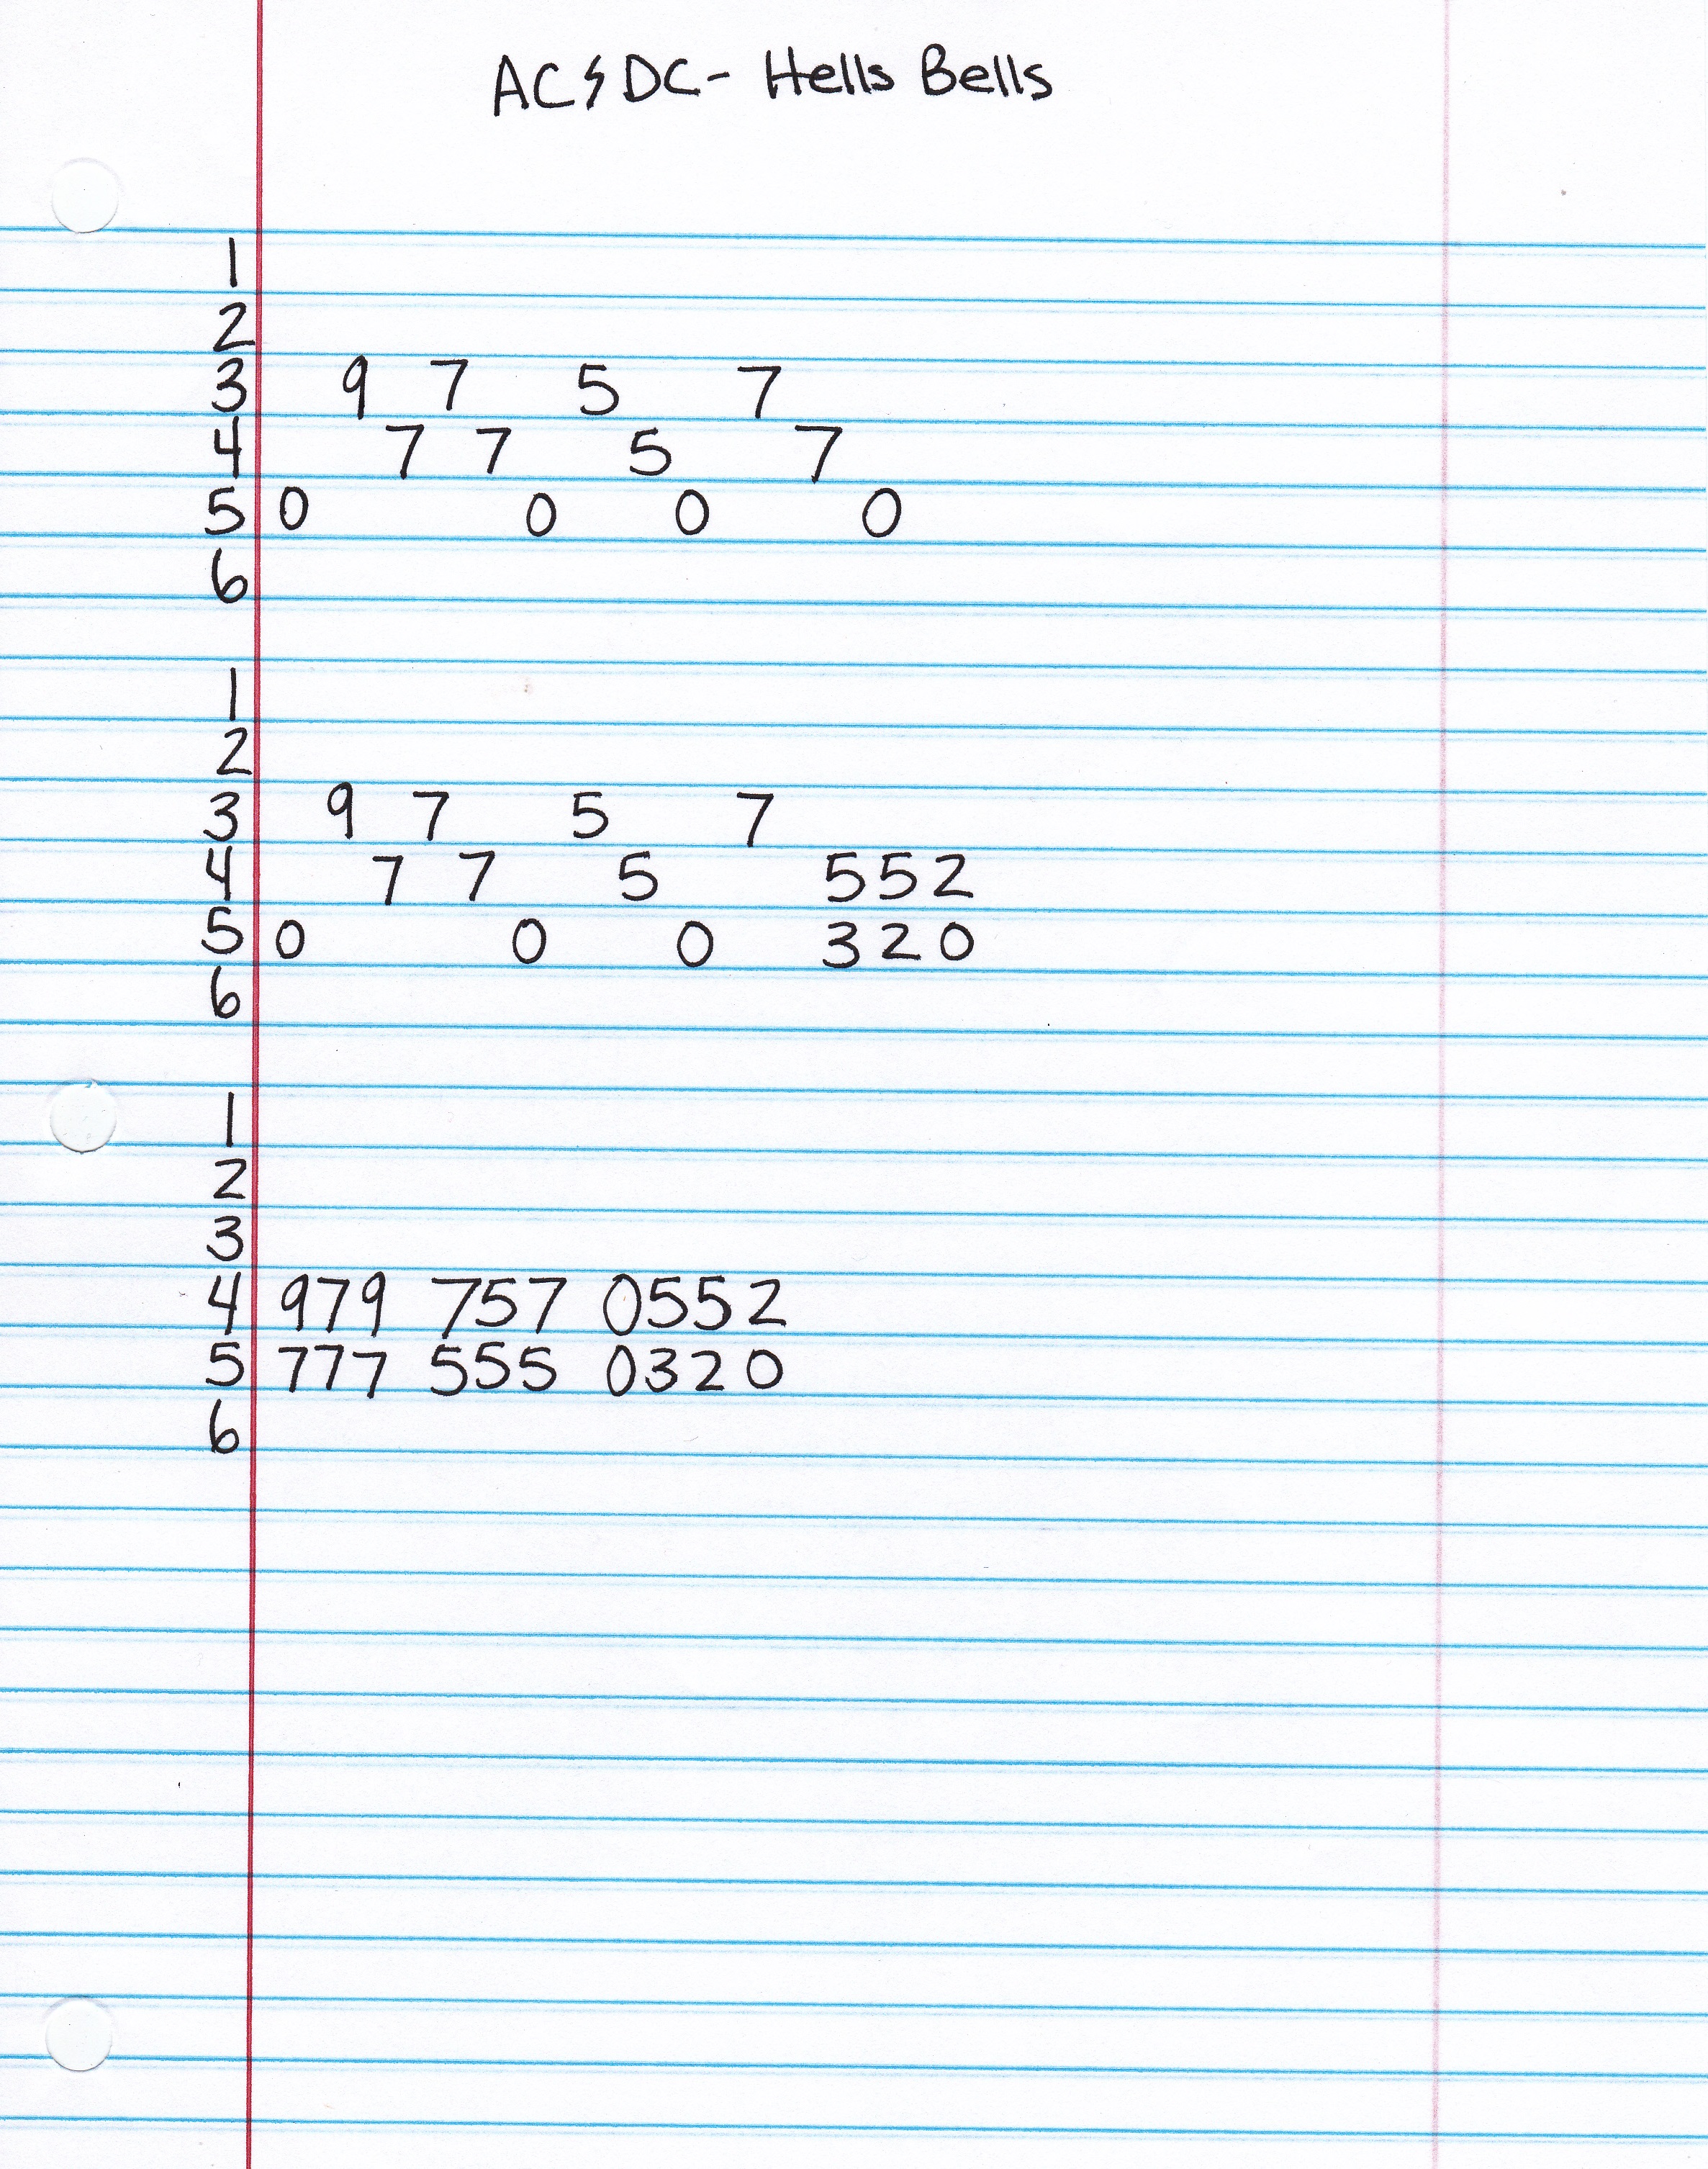 AC⚡DC- Hells Bells
1
2
3 9 7 5 7
4 7 7 5 7
5 0 0 0 0
6
1
2
3 9 7 5 7
4 7 7 5 552
5 0 0 0 320
6
1
2
3
4 979 757 0552
5 777 555 0320
6